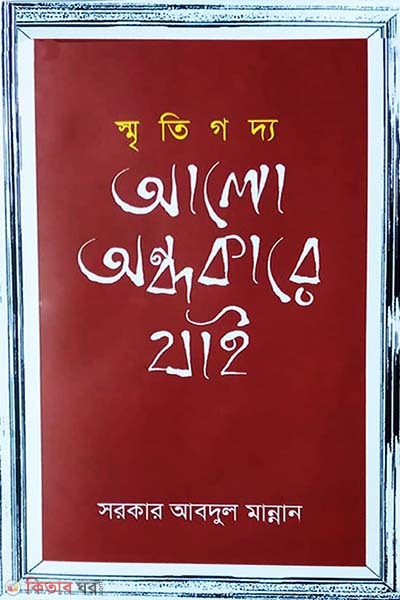 স্মৃতিগদ্য
আলো
অন্ধকারে
যাই
সরকার আবদুল মান্নান
কিতাব ঘর